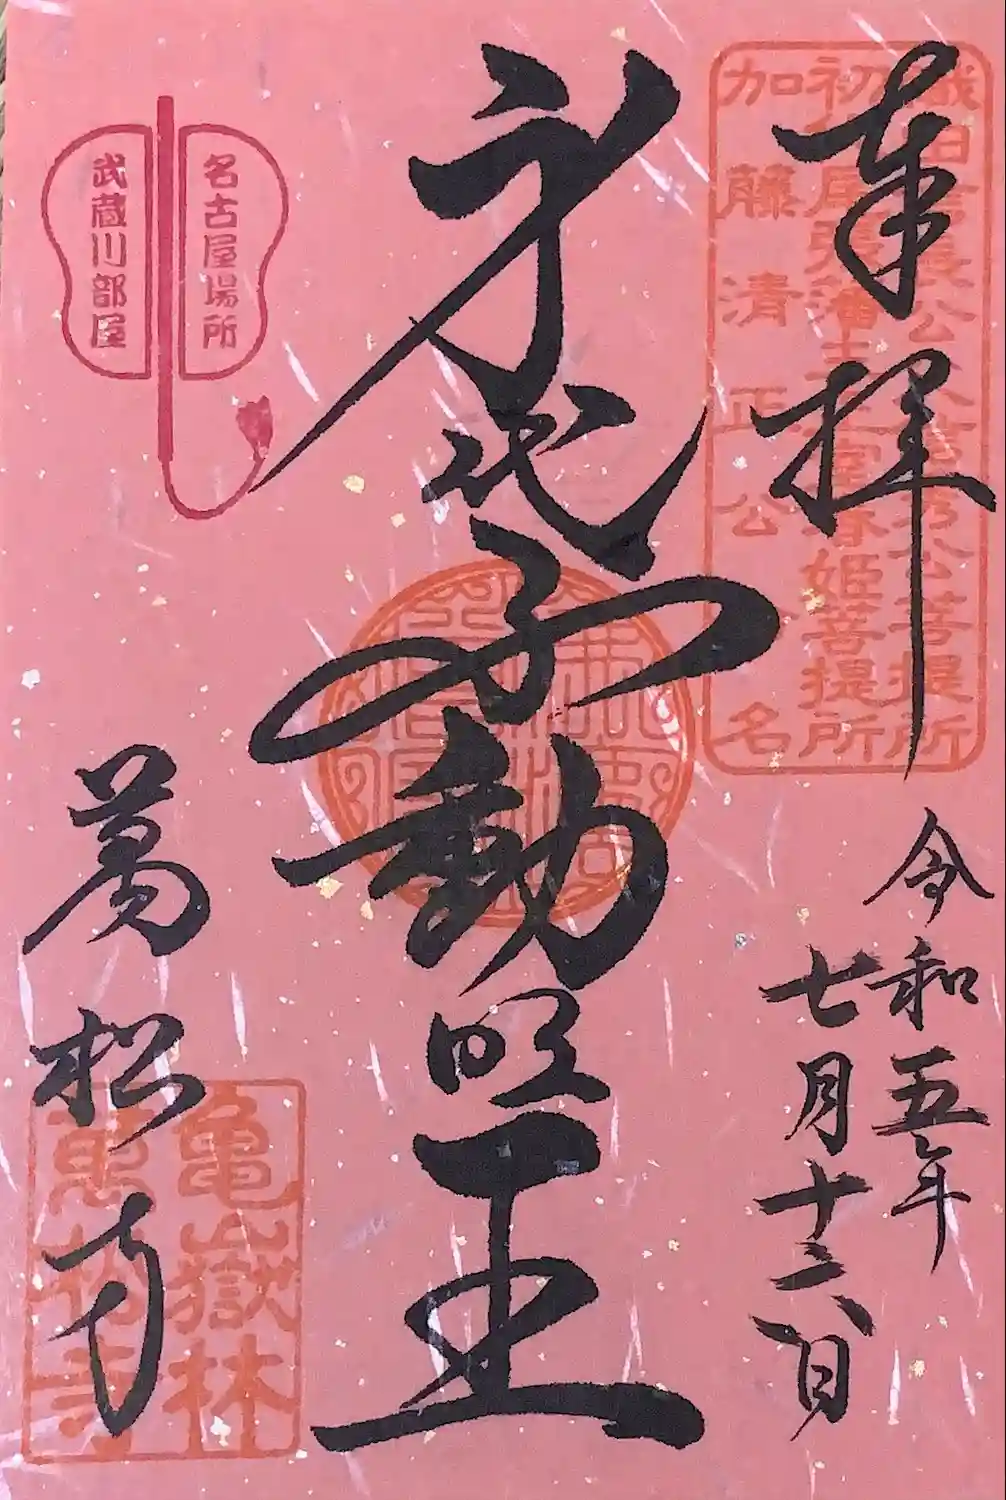 奉拝
織田信長公父 秀公菩提所
初代尾張藩主正室春姫菩提所
加藤清正公 名
令和五年
七月十六日
身代不動明王
名古屋場所
武蔵川部屋
萬松寺
亀嶽林
萬松寺